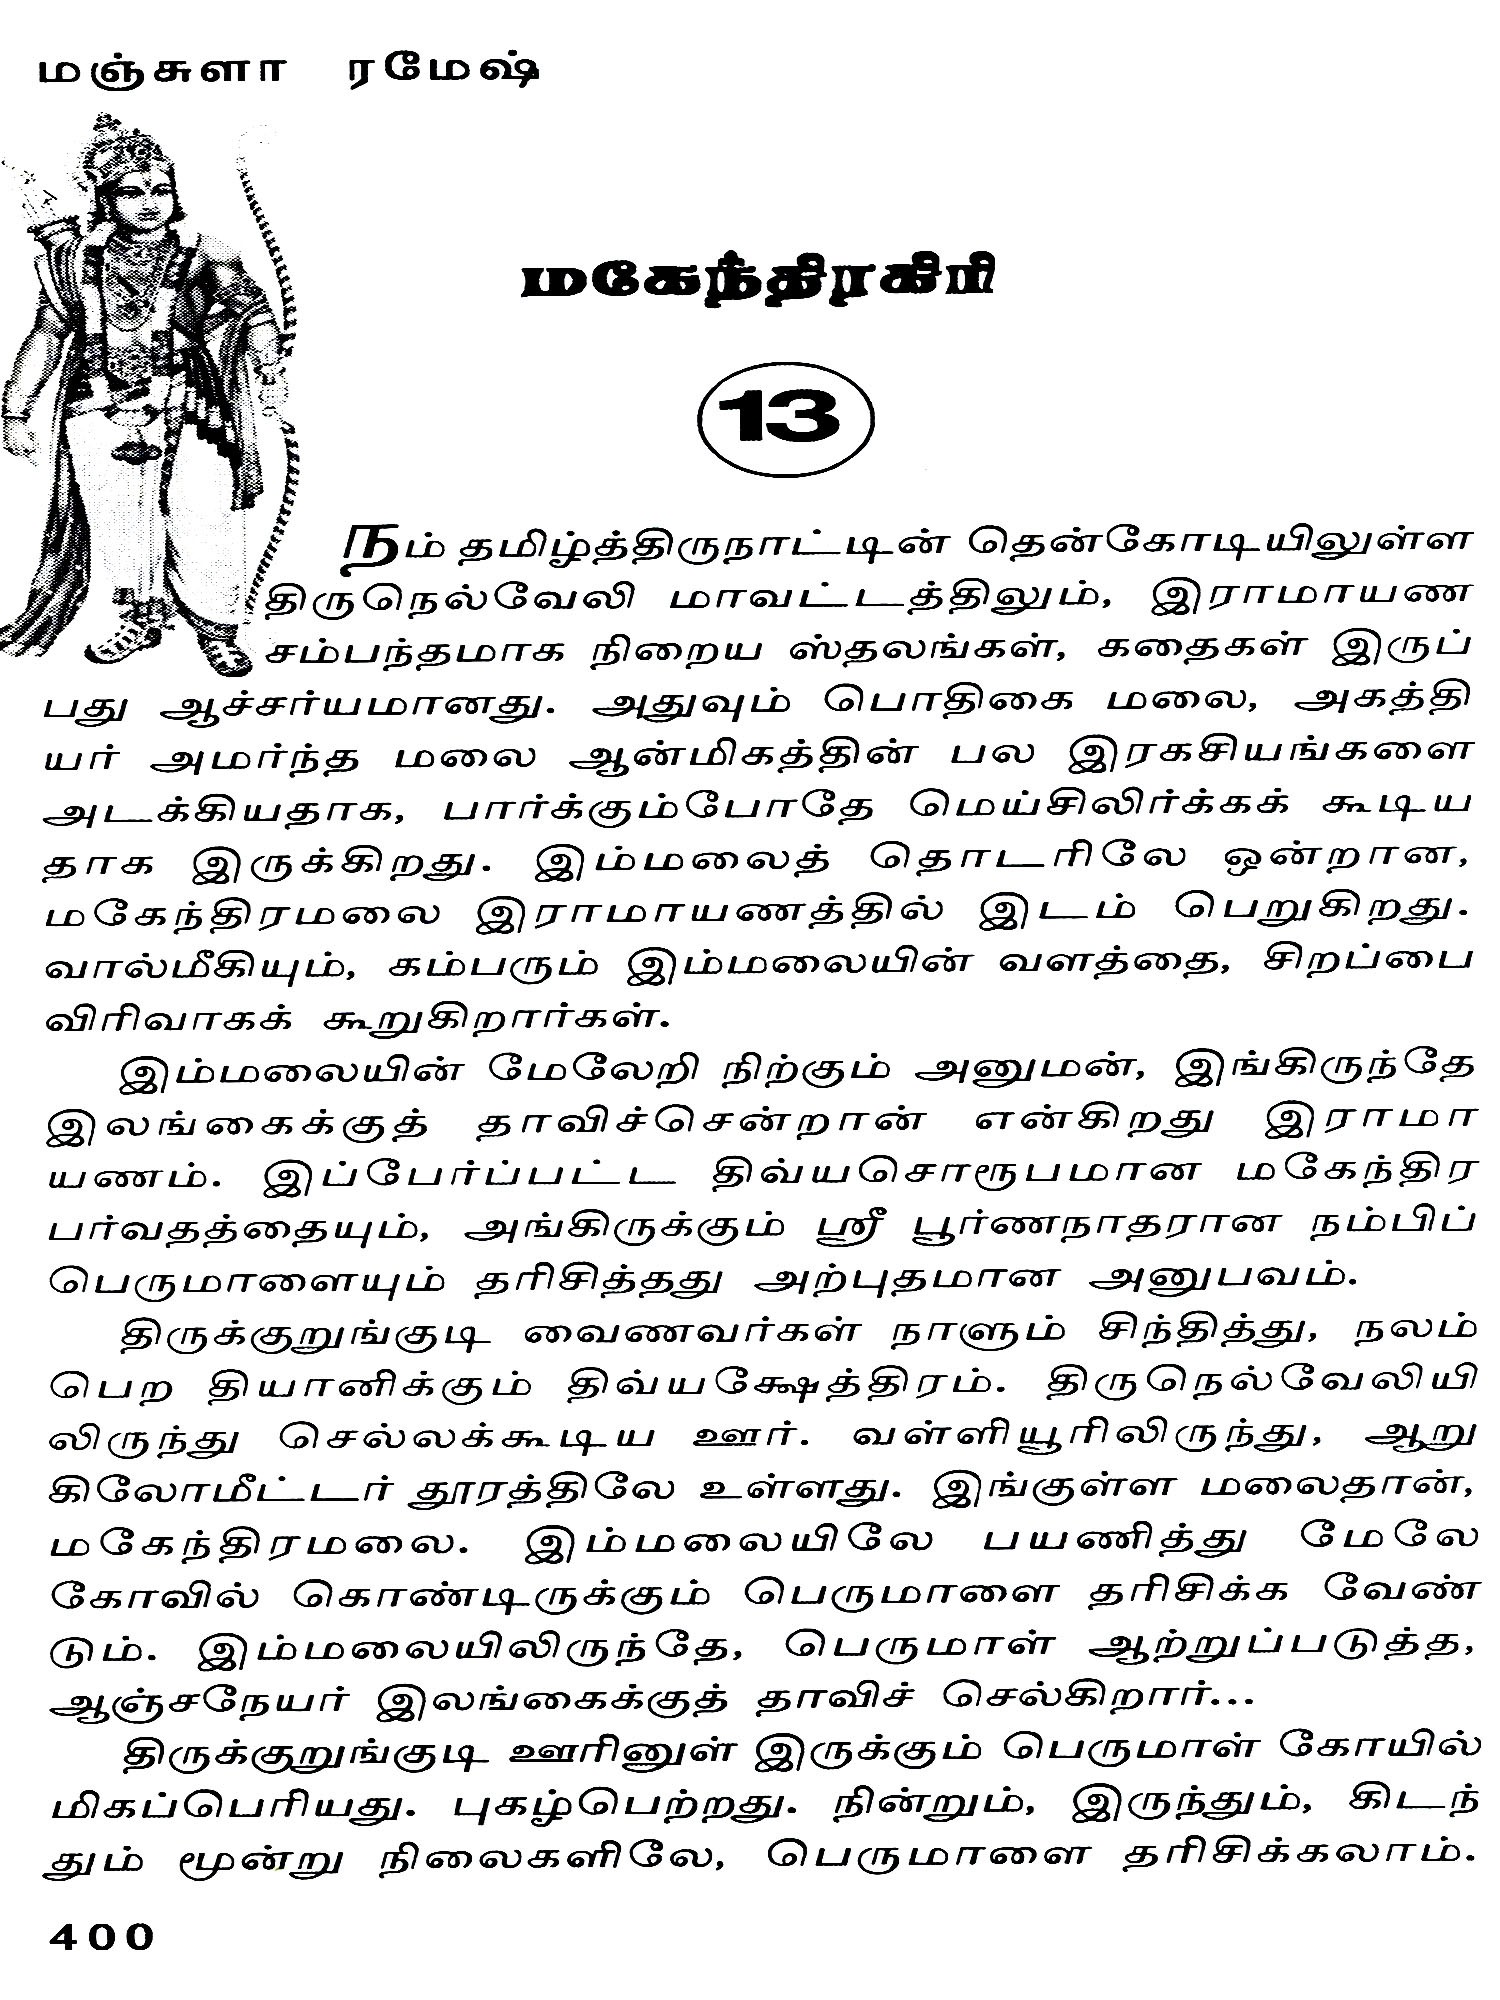 மஞ்சுளா ரமேஷ்
மகேந்திரகிரி
13
நம் தமிழ்த்திருநாட்டின் தென்கோடியிலுள்ள
திருநெல்வேலி மாவட்டத்திலும், இராமாயண
சம்பந்தமாக நிறைய ஸ்தலங்கள், கதைகள் இருப்
பது ஆச்சர்யமானது. அதுவும் பொதிகை மலை, அகத்தி
யர் அமர்ந்த மலை ஆன்மிகத்தின் பல இரகசியங்களை
அடக்கியதாக, பார்க்கும்போதே மெய்சிலிர்க்கக் கூடிய
தாக இருக்கிறது. இம்மலைத் தொடரிலே ஒன்றான,
மகேந்திரமலை இராமாயணத்தில் இடம் பெறுகிறது.
வால்மீகியும், கம்பரும் இம்மலையின் வளத்தை, சிறப்பை
விரிவாகக் கூறுகிறார்கள்.
இம்மலையின் மேலேறி நிற்கும் அனுமன், இங்கிருந்தே
இலங்கைக்குத் தாவிச்சென்றான் என்கிறது இராமா
யணம். இப்பேர்ப்பட்ட திவ்யசொரூபமான மகேந்திர
பர்வதத்தையும், அங்கிருக்கும் ஸ்ரீ பூர்ணநாதரான நம்பிப்
பெருமாளையும் தரிசித்தது அற்புதமான அனுபவம்.
திருக்குறுங்குடி வைணவர்கள் நாளும் சிந்தித்து, நலம்
பெற தியானிக்கும் திவ்யக்ஷேத்திரம். திருநெல்வேலியி
லிருந்து செல்லக்கூடிய ஊர். வள்ளியூரிலிருந்து, ஆறு
கிலோமீட்டர் தூரத்திலே உள்ளது. இங்குள்ள மலைதான்,
மகேந்திரமலை. இம்மலையிலே பயணித்து மேலே
கோவில் கொண்டிருக்கும் பெருமாளை தரிசிக்க வேண்
டும். இம்மலையிலிருந்தே, பெருமாள் ஆற்றுப்படுத்த,
ஆஞ்சநேயர் இலங்கைக்குத் தாவிச் செல்கிறார்...
திருக்குறுங்குடி ஊரினுள் இருக்கும் பெருமாள் கோயில்
மிகப்பெரியது. புகழ்பெற்றது. நின்றும், இருந்தும், கிடந்
தும் மூன்று நிலைகளிலே, பெருமாளை தரிசிக்கலாம்.
400